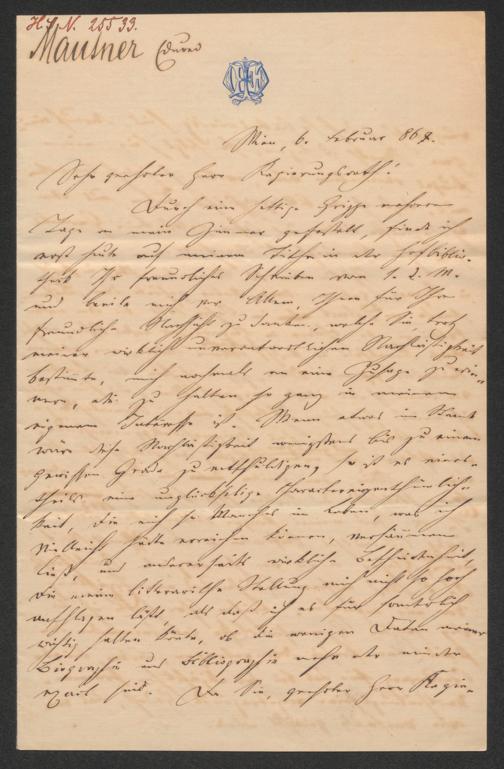 H. I. N. 20533.
Mautner Eduard
Wien, 6. Februar 868.
Sehr geehrter Herr Regierungsrath!
Durch eine heftige Grippe mehrere
Tage an mein Zimmer gefesselt, finde ich
erst heute auf meinem Tische in der Hofbiblio-
thek Ihr freundliches Schreiben vom 1. d. M.
und beeile mich vor Allem, Ihnen für Ihre
freundliche Nachsicht zu danken, welche Sie, trotz
meiner wirklich unverantwortlichen Nachlässigkeit
bestimmte, mich nochmals an eine Zusage zu erin-
nern, die zu halten so ganz in meinem
eigenen Interesse ist. Wenn etwas im Stande
wäre diese Nachlässigkeit wenigstens bis zu einem
gewissen Grade zu entschuldigen, so ist es einer-
theils eine unglückselige Charaktereigenthümlich-
keit, die mich so Manches im Leben, was ich
vielleicht hätte erreichen können, versäumen
ließ, und andererseits wirkliche Bescheidenheit,
die meine literarische Stellung mich nicht so hoch
anschlagen läßt, als daß ich es für sonderlich
wichtig halten könnte, ob die wenigen Daten meiner
Biographie und Bibliographie mehr oder minder
exact sind. Da Sie, geehrter Herr Regie-